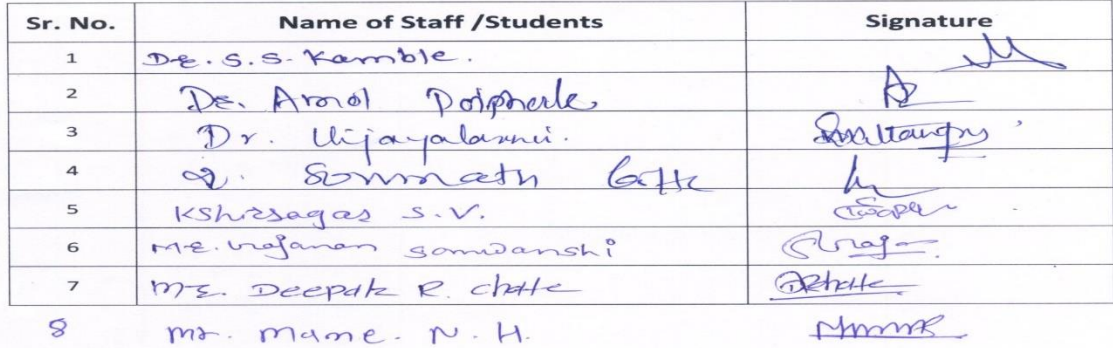 Sr. No. Name of Staff /Students Signature
1 Dr. S.S. Kamble.
2 Dr. Amol Doiphode
3 Dr. Vijayalaxmi.
4 Somnath Gitte
5 Kshirsagar S.V.
6 Mr. Gajanan Somwanshi
7 Mr. Deepak R. Chatte
8 Mr. Mane. N. H.